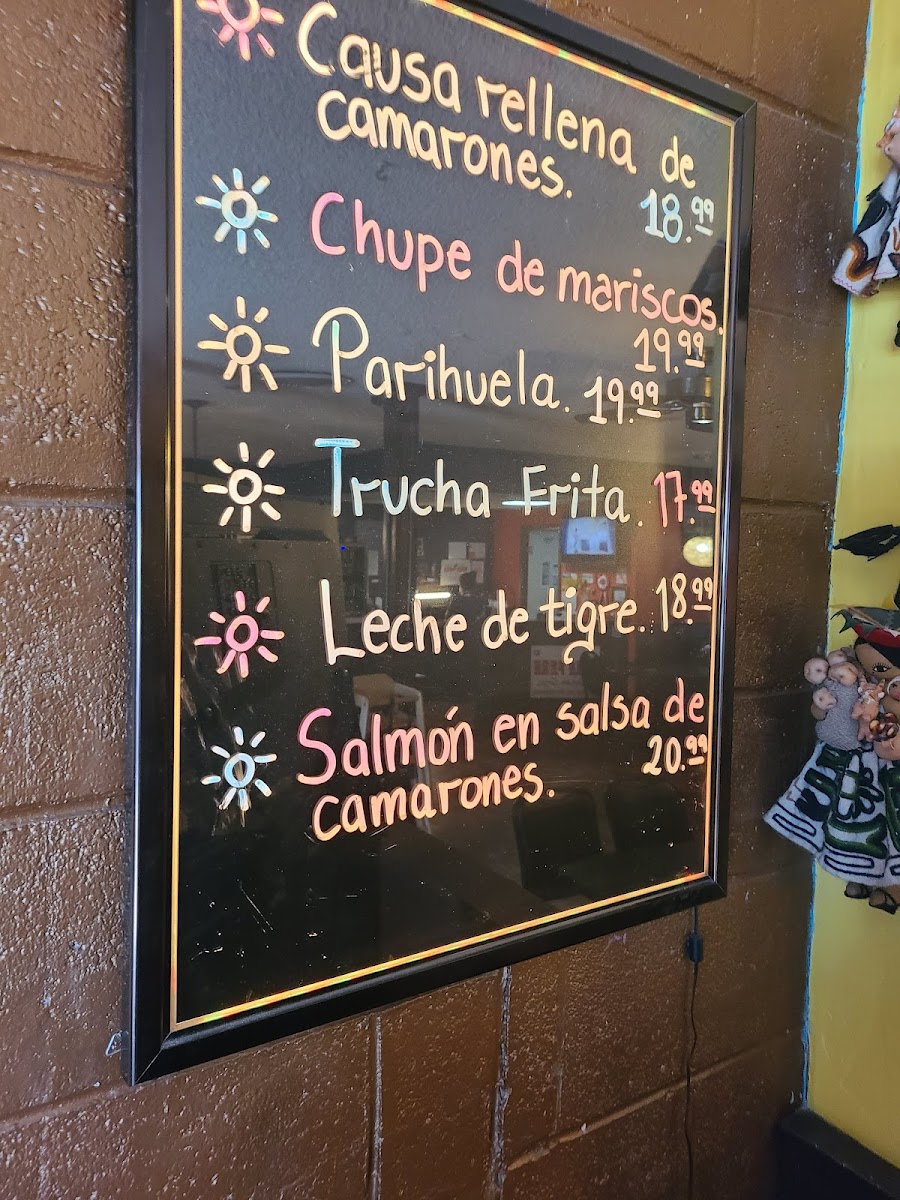 Causa rellena de
camarones. 18.99
Chupe de mariscos.
19.99
Parihuela. 19.99
Trucha Frita. 17.99
Leche de tigre. 18.99
Salmón en salsa de
camarones. 20.99